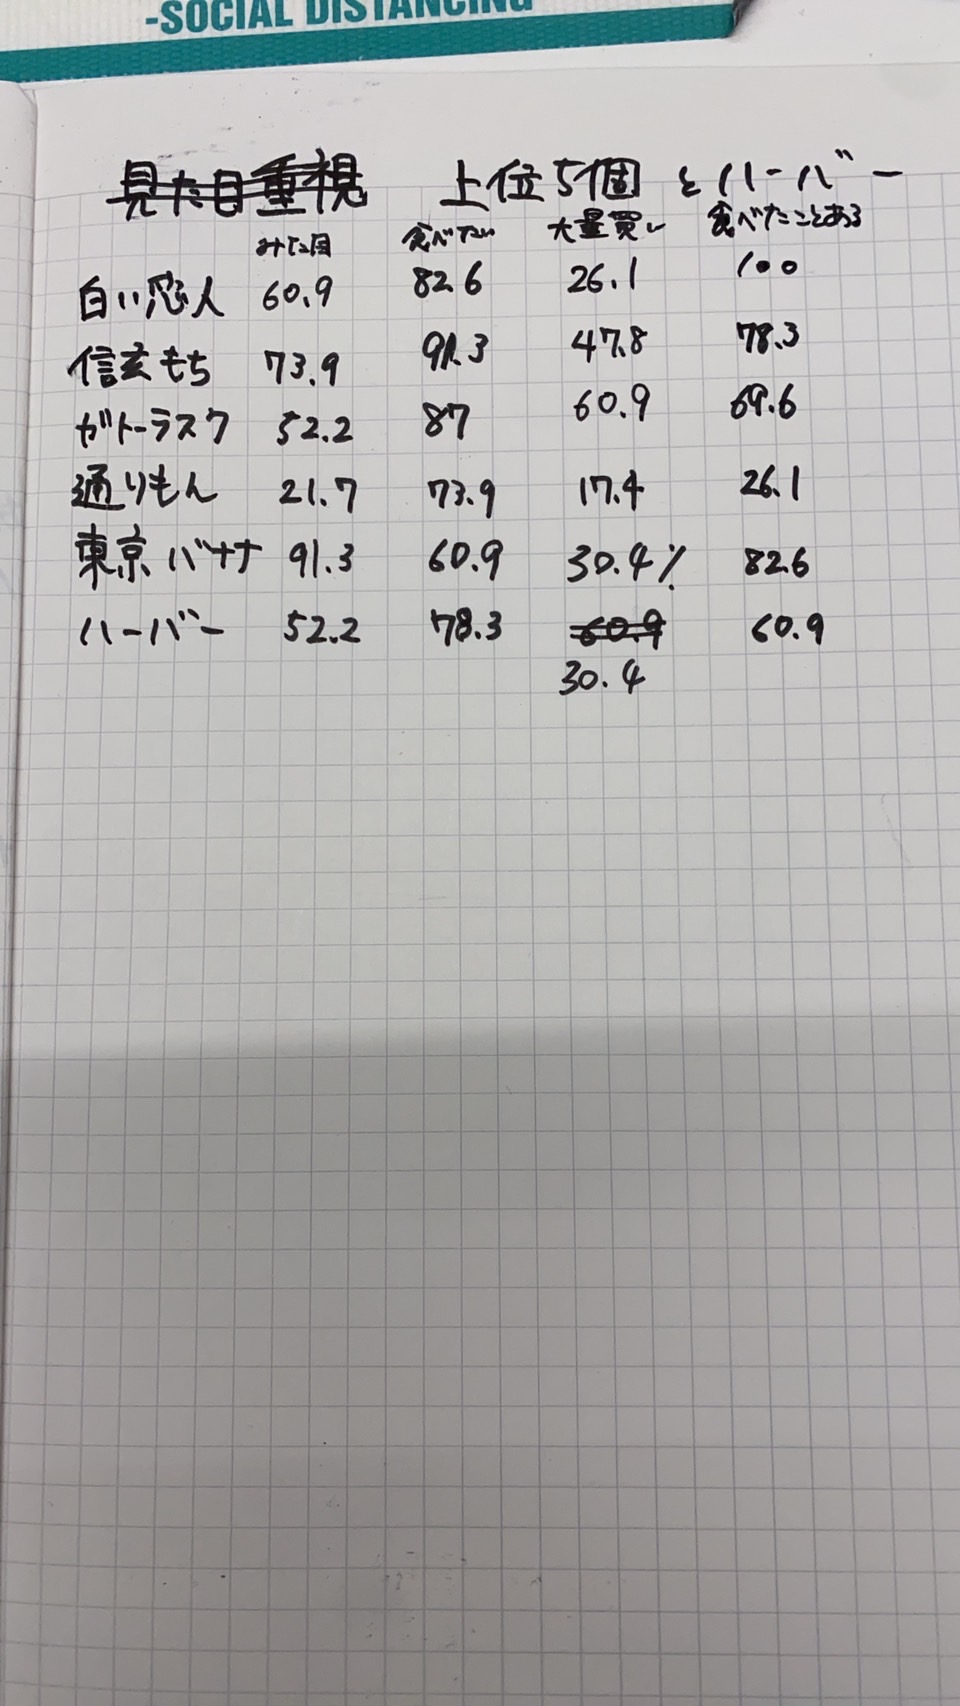 -SOCIAL DISTANCING
見た目重視 上位5個 とハーバー
みた目 食べたい 大量買い 食べたことある
白い恋人 60.9 82.6 26.1 100
信玄もち 73.9 91.3 47.8 78.3
ガトーラスク 52.2 87 60.9 69.6
通りもん 21.7 73.9 17.4 26.1
東京バナナ 91.3 60.9 30.4% 82.6
ハーバー 52.2 78.3 60.9 60.9
30.4